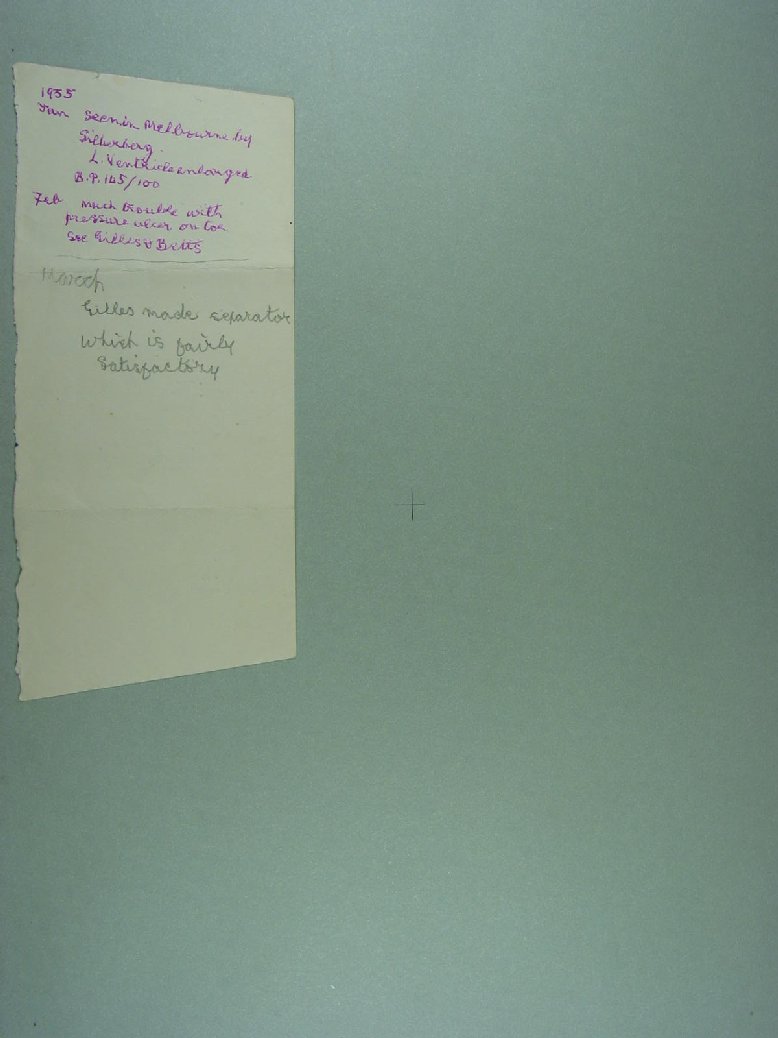 1955
Jan Seen in Melbourne by
Silberberg.
L. Ventricle enlarged
B.P. 145/100
Feb much trouble with
pressure ulcer on toe
See Gilles & Betts
March
Gilles made separator
which is fairly
Satisfactory